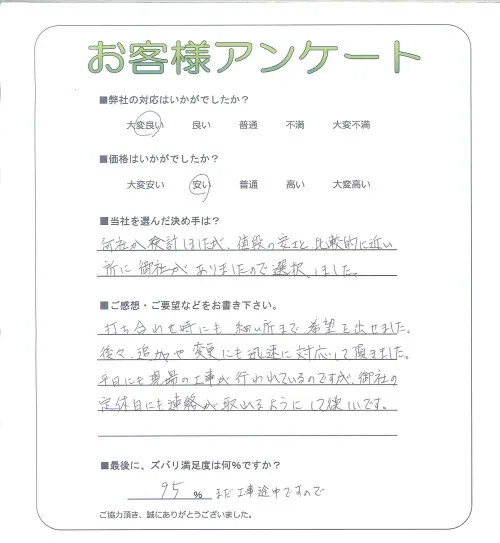 お客様アンケート
■弊社の対応はいかがでしたか？
大変良い 良い 普通 不満 大変不満
■価格はいかがでしたか？
大変安い 安い 普通 高い 大変高い
■当社を選んだ決め手は？
何社か検討しましたが、値段の安さと比較的に近い
所に御社がありましたので選択しました。
■ご感想・ご要望などをお書き下さい。
打ち合わせ時にも細い所まで希望を出せました。
後々、追加や変更にも迅速に対応して頂きました。
平日にも現場の工事が行われているのですが、御社の
定休日にも連絡が取れるようにして欲しいです。
■最後に、ズバリ満足度は何％ですか？
95 % まだ工事途中ですので
ご協力頂き、誠にありがとうございました。